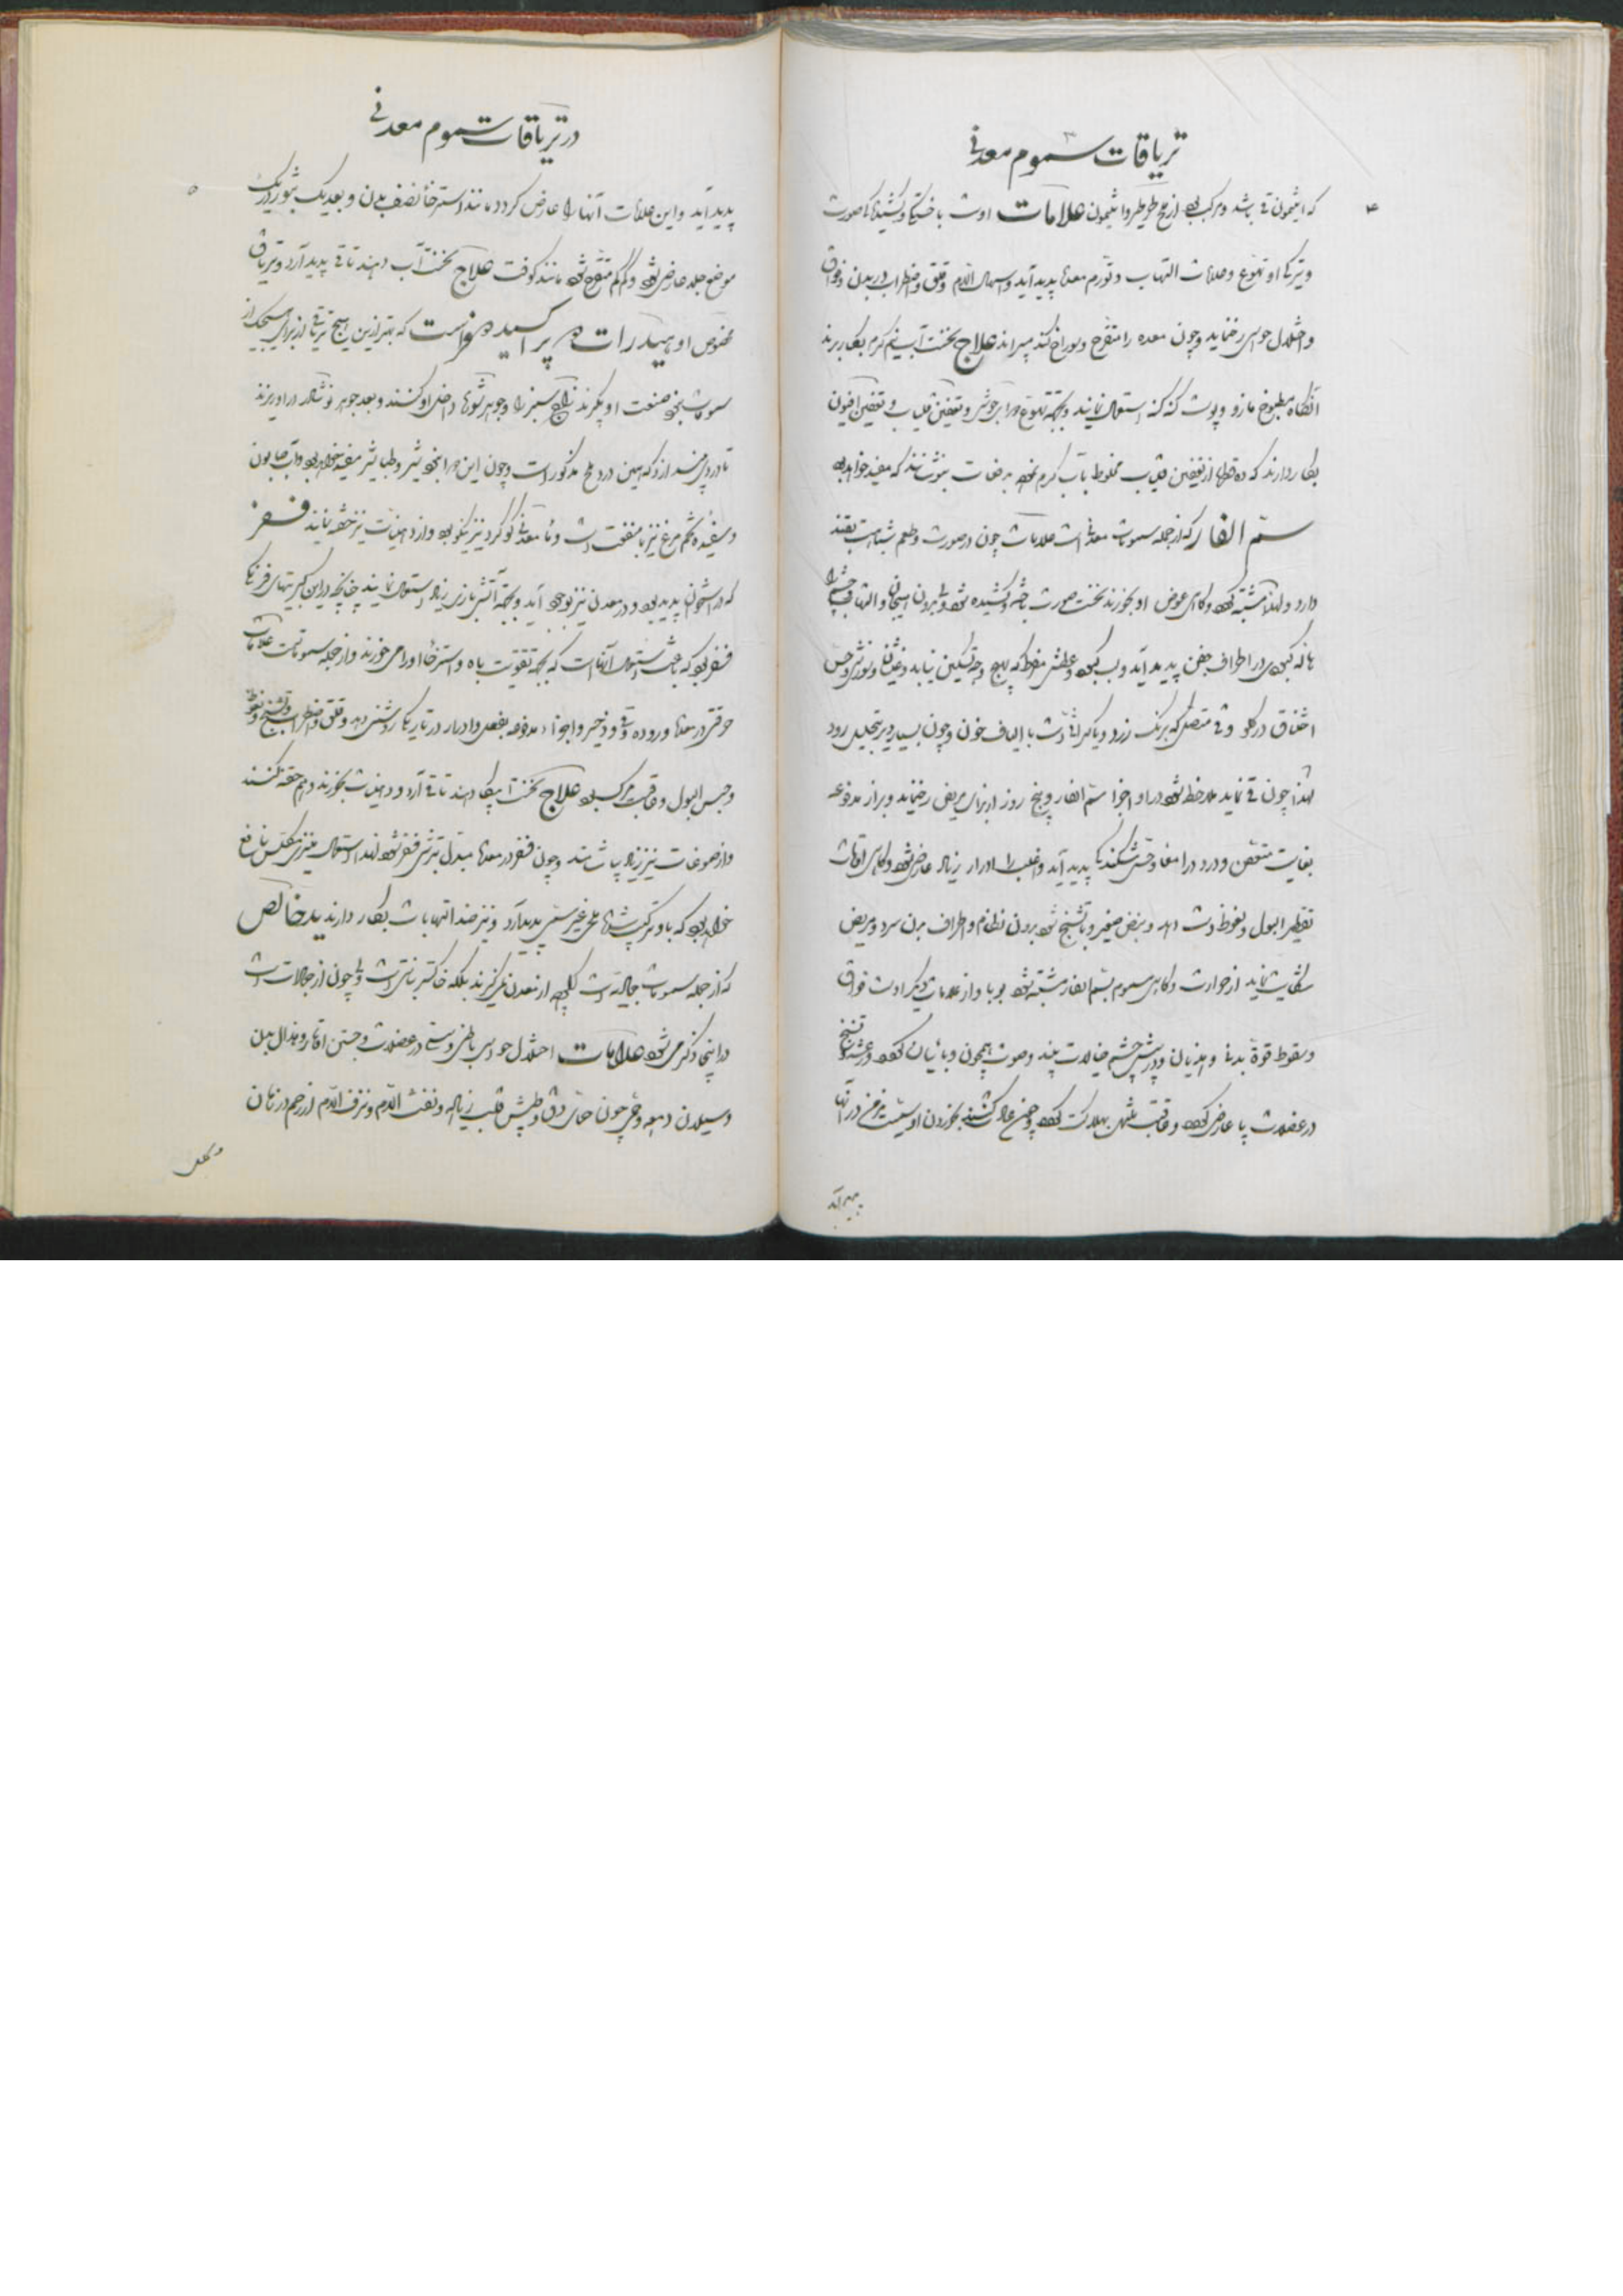 تریاقات سموم معدنی
۴
که انتیمون قی باشد و مرکب بود از ملح طرطیر و انتیمون علامات اوست با خستگی و کشیدگی صورت
و تیرگی او و تهوع و علامات التهاب و تورم معده پدید آید و اسهال الدم و قلق و اضطراب در بدن و فواق
و اختلال حواس رخ نماید و چون معده را متقرح و سوراخ کند میراند علاج نخست آب نیم گرم بکار برند
آنگاه مطبوخ مازو و پوست کنه کنه استعمال نمایند و بجهة تهوع دوای جوشش و تعفین و تعفین افیون
بکار دارند که ده قطره از تعفین مخلوط بآب گرم نموده بدفعات بنوشانند که مفید خواهد بود
سم الفار که از جمله سمومات معدنی است علامات چون در صورت و طعم شباهت بقند
دارد و لهذا مشتبه گردد و گاهی عوض او بخورند نخست صورت خسته و کشیده شود و بیرون و التهاب
هاله کبودی در اطراف جفن پدید آید و لب کبود و عطش مفرط که بهیچ وجه تسکین نیابد و غثیان و سوزش و حس
اختناق در گلو و قی متصل که برنگ زرد و یا با الیاف خون و چون بسیار دیر بتحلیل رود
لهذا چون قی نماید ملاحظه شود در او اجزا سم الفار و پنج روز از برای مریض رخ نماید و براز مدفوعه
بغایت متعفن و درد در امعا و پدید آید و اغلب را ادرار زیاد عارض شود و گاهی اوقات
تقطیر البول و نعوظ دست دهد و نبض صغیر و با تشنج شود بدون نظام و اطراف بدن سرد و مریض
شکایت نماید از حرارت و گاهی مسموم بسم الفار مشتبه شود بوبا و از علامات دیگر اوست فواق
و سقوط قوة بدن و هذیان و در پیش چشم خیالات بیند و صوت همچون وبائیان گردد و رعشه و تشنج
در عضلات پا عارض گردد و عاقبت منتهی بهلاکت گردد و چون عادت کنند بخوردن او سمیت مزمن در آنها
پدید آید
در تریاقات سموم معدنی
۵
پدید آید و این علامات آنها را عارض گردد مانند استرخا نصف بدن و بعد یک بثور در یک
موضع جلد عارض شود و کم کم متقرح شود مانند کوفت علاج نخست آب دهند تا قی پدید آرد و تریاق
مخصوص او هیدرات در پراکسید دو فراست که بهتر ازین هیچ تریاقی از برای هیچیک از
سمومات نبود صنعت او بگیرند زاج سبز را و جوهر شوره داخل او کنند و بعد جوهر نوشادر در او ریزند
تا دردی میند ازد که همین درد ملح مذکور است و چون این دوا نبود شیر و طباشیر مفید خواهد بود و آب صابون
و سفیده تخم مرغ نیز با منفعت است و ماء معدنی گوگرد نیز نیکو بود و از دهنیات نیز حقنه نمایند فسفر
که در استخوان پدید بود و در معدن نیز بوجود آید و بجهة آتش بازی زیاد استعمال نمایند چنانچه در این کبریتهای فرنگی
فسفر بود که باعث اشتعال آنهاست که بجهة تقویت باه و استرخا او را می خورند و از جمله سمومات است علامات
حرقتی در معده و روده و قی و زحیر و اجزاء مدفوعه بفعل و ادرار در تاریکی روشنی دهد و قلق و اضطراب و تشنج و نعوظ
و حبس البول و عاقبت مرگ بود علاج نخست آب بسیار دهند تا قی آرد و دهنیات بخورند و هم حقنه کنند
و از صموغات نیز زیاد بیاشامند و چون فسفر در معده مبدل بترشی فسفر شود لهذا استعمال منیزی مکلس نافع
خواهد بود که با او ترکیب شده ملحی غیر سمی پدید آرد و نیز ضد التهابات بکار دارند ید خالص
که از جمله سمومات جمالیه است اگرچه از معدن نمی گیرند بلکه خاکستر نباتی است ولی چون از جمادات است
در اینجا ذکر می شود علامات اختلال حواس باطنی و سستی در عضلات و جستن اوتار و هزال بدن
و سیلان دمعه و تبی چون حمای دق و طپش قلب زیاد و نفث الدم و نزف الدم از رحم در زنان